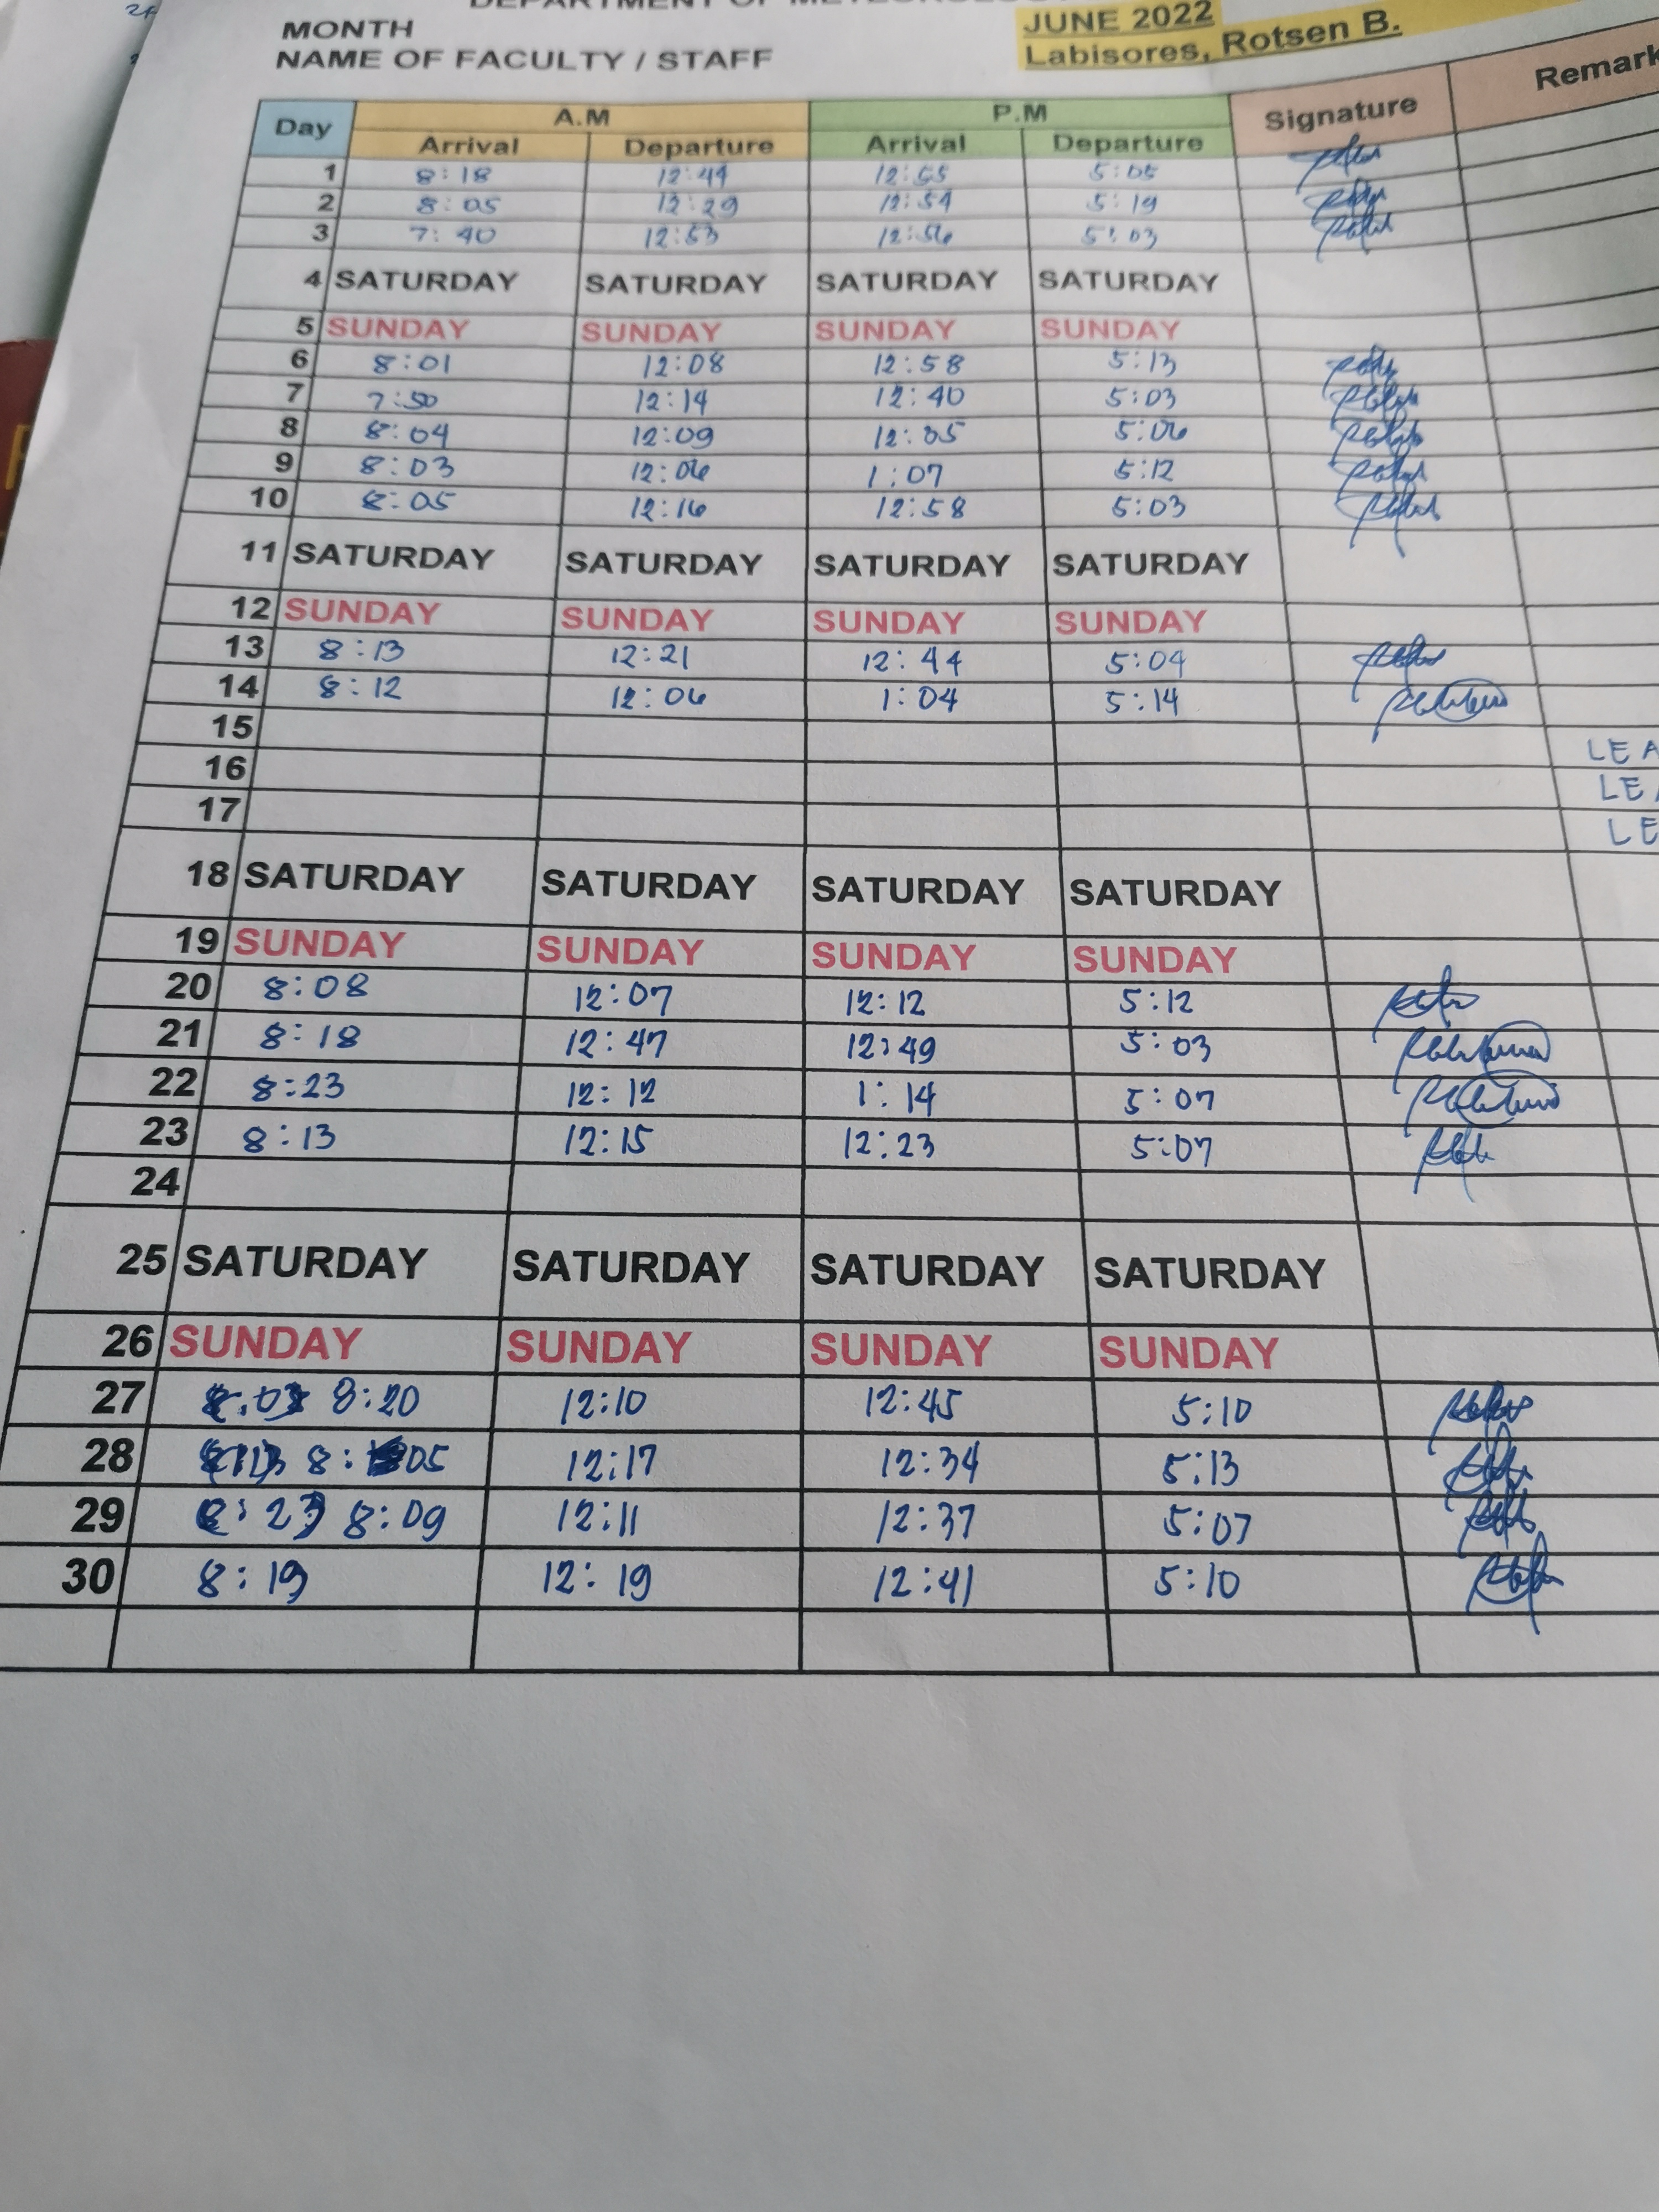 DEPARTMENT OF
MONTH JUNE 2022
NAME OF FACULTY / STAFF Labisores, Rotsen B.
Day A.M P.M Signature Remark
Arrival Departure Arrival Departure
1 8:18 12:44 12:55 5:05
2 8:05 12:29 12:54 5:19
3 7:40 12:53 12:56 5:03
4 SATURDAY SATURDAY SATURDAY SATURDAY
5 SUNDAY SUNDAY SUNDAY SUNDAY
6 8:01 12:08 12:58 5:13
7 7:50 12:14 12:40 5:03
8 8:04 12:09 12:35 5:06
9 8:03 12:06 1:07 5:12
10 8:05 12:16 12:58 5:03
11 SATURDAY SATURDAY SATURDAY SATURDAY
12 SUNDAY SUNDAY SUNDAY SUNDAY
13 8:13 12:21 12:44 5:04
14 8:12 12:06 1:04 5:14
15 LEA
16 LEA
17 LE
18 SATURDAY SATURDAY SATURDAY SATURDAY
19 SUNDAY SUNDAY SUNDAY SUNDAY
20 8:08 12:07 12:12 5:12
21 8:18 12:47 12:49 5:03
22 8:23 12:12 1:14 5:07
23 8:13 12:15 12:23 5:07
24
25 SATURDAY SATURDAY SATURDAY SATURDAY
26 SUNDAY SUNDAY SUNDAY SUNDAY
27 8:20 12:10 12:45 5:10
28 8:05 12:17 12:34 5:13
29 8:09 12:11 12:37 5:07
30 8:19 12:19 12:41 5:10